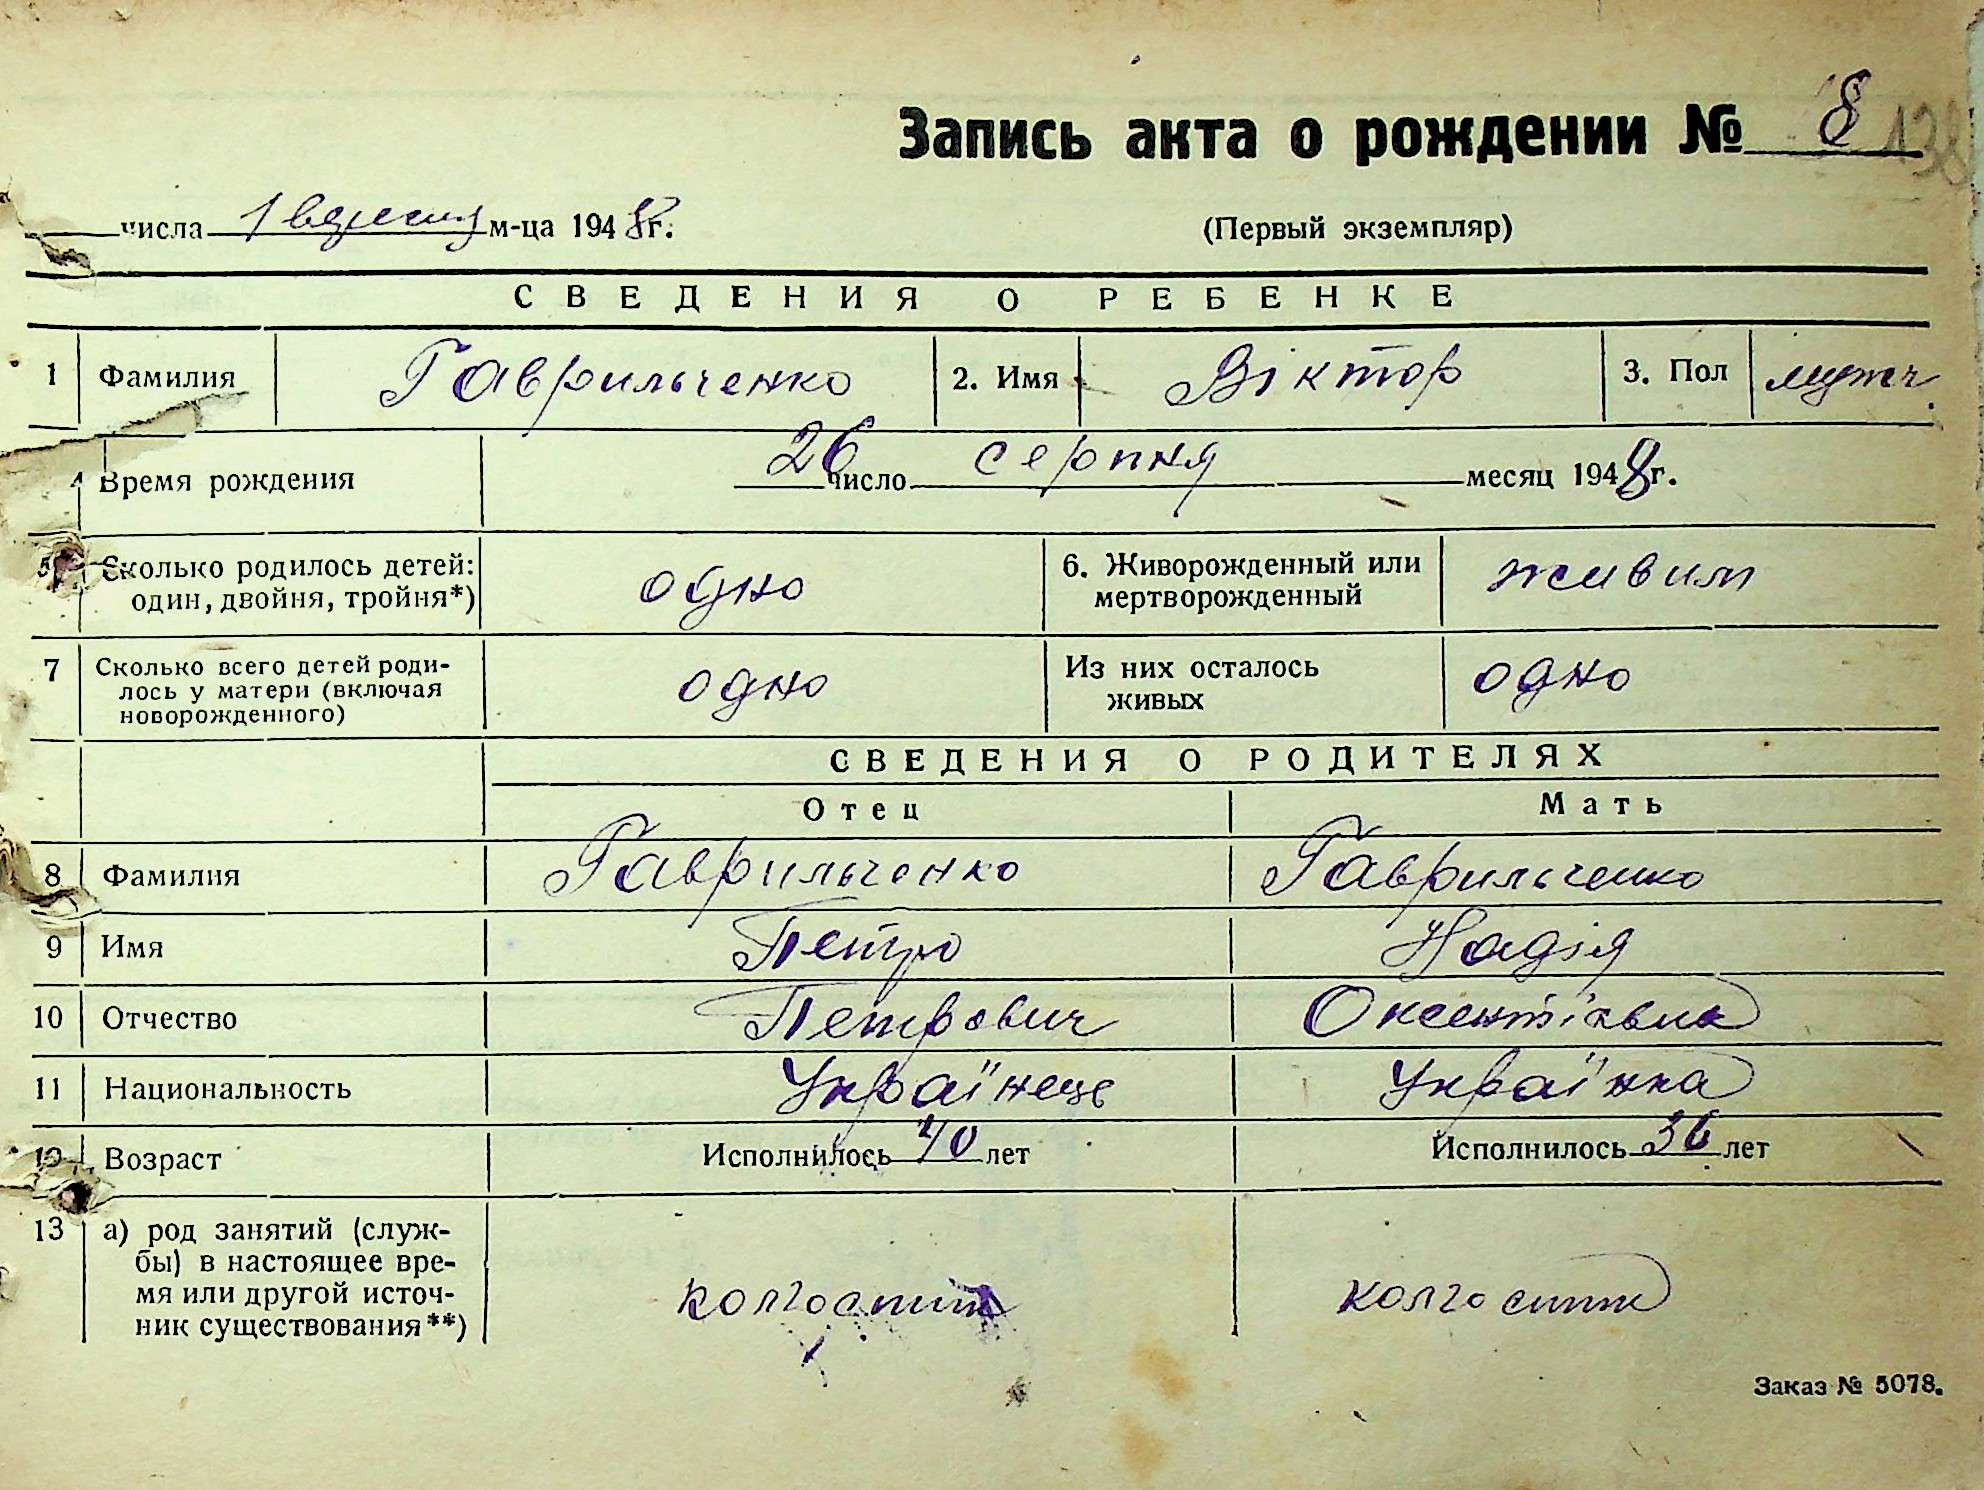 Запись акта о рождении № 8 138
числа 1 вересня м-ца 1948 г.
(Первый экземпляр)
СВЕДЕНИЯ О РЕБЕНКЕ
1 Фамилия Гаврильченко 2. Имя Віктор 3. Пол мужч.
4 Время рождения 26 число серпня месяц 1948 г.
5 Сколько родилось детей: один, двойня, тройня*) одно 6. Живорожденный или мертворожденный живим
7 Сколько всего детей роди-
лось у матери (включая
новорожденного) одно Из них осталось живых одно
СВЕДЕНИЯ О РОДИТЕЛЯХ
Отец Мать
8 Фамилия Гаврильченко Гаврильченко
9 Имя Петро Надія
10 Отчество Петрович Оксентіївна
11 Национальность Українець Українка
12 Возраст Исполнилось 40 лет Исполнилось 36 лет
13 а) род занятий (служ-
бы) в настоящее вре-
мя или другой источ-
ник существования**) колгоспник колгоспн
Заказ № 5078.